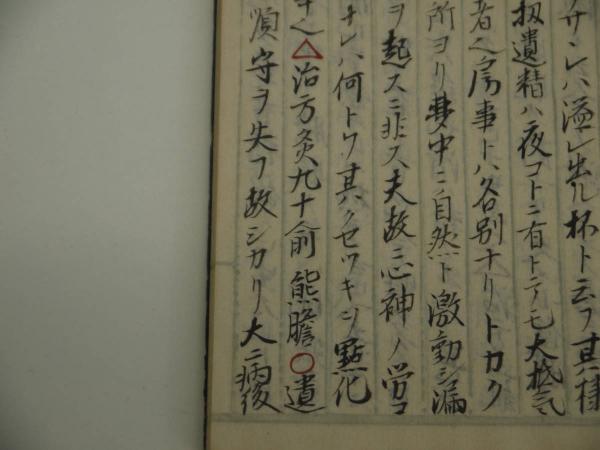 サレハ溢レ出ル杯ト云フ其様
扨遺精ハ夜コトニ有トテモ大抵気
者ヘ房事トハ各別ナリトカク
所ヨリ夢中ニ自然ト激動シ漏
ヲ起スニ非ス夫故ニ心神ノ労コ
ナレハ何トワ其ハクセワキツ點化
△治方灸九十俞熊膽○遺
順守ヲ失フ故シカリ大ニ病後